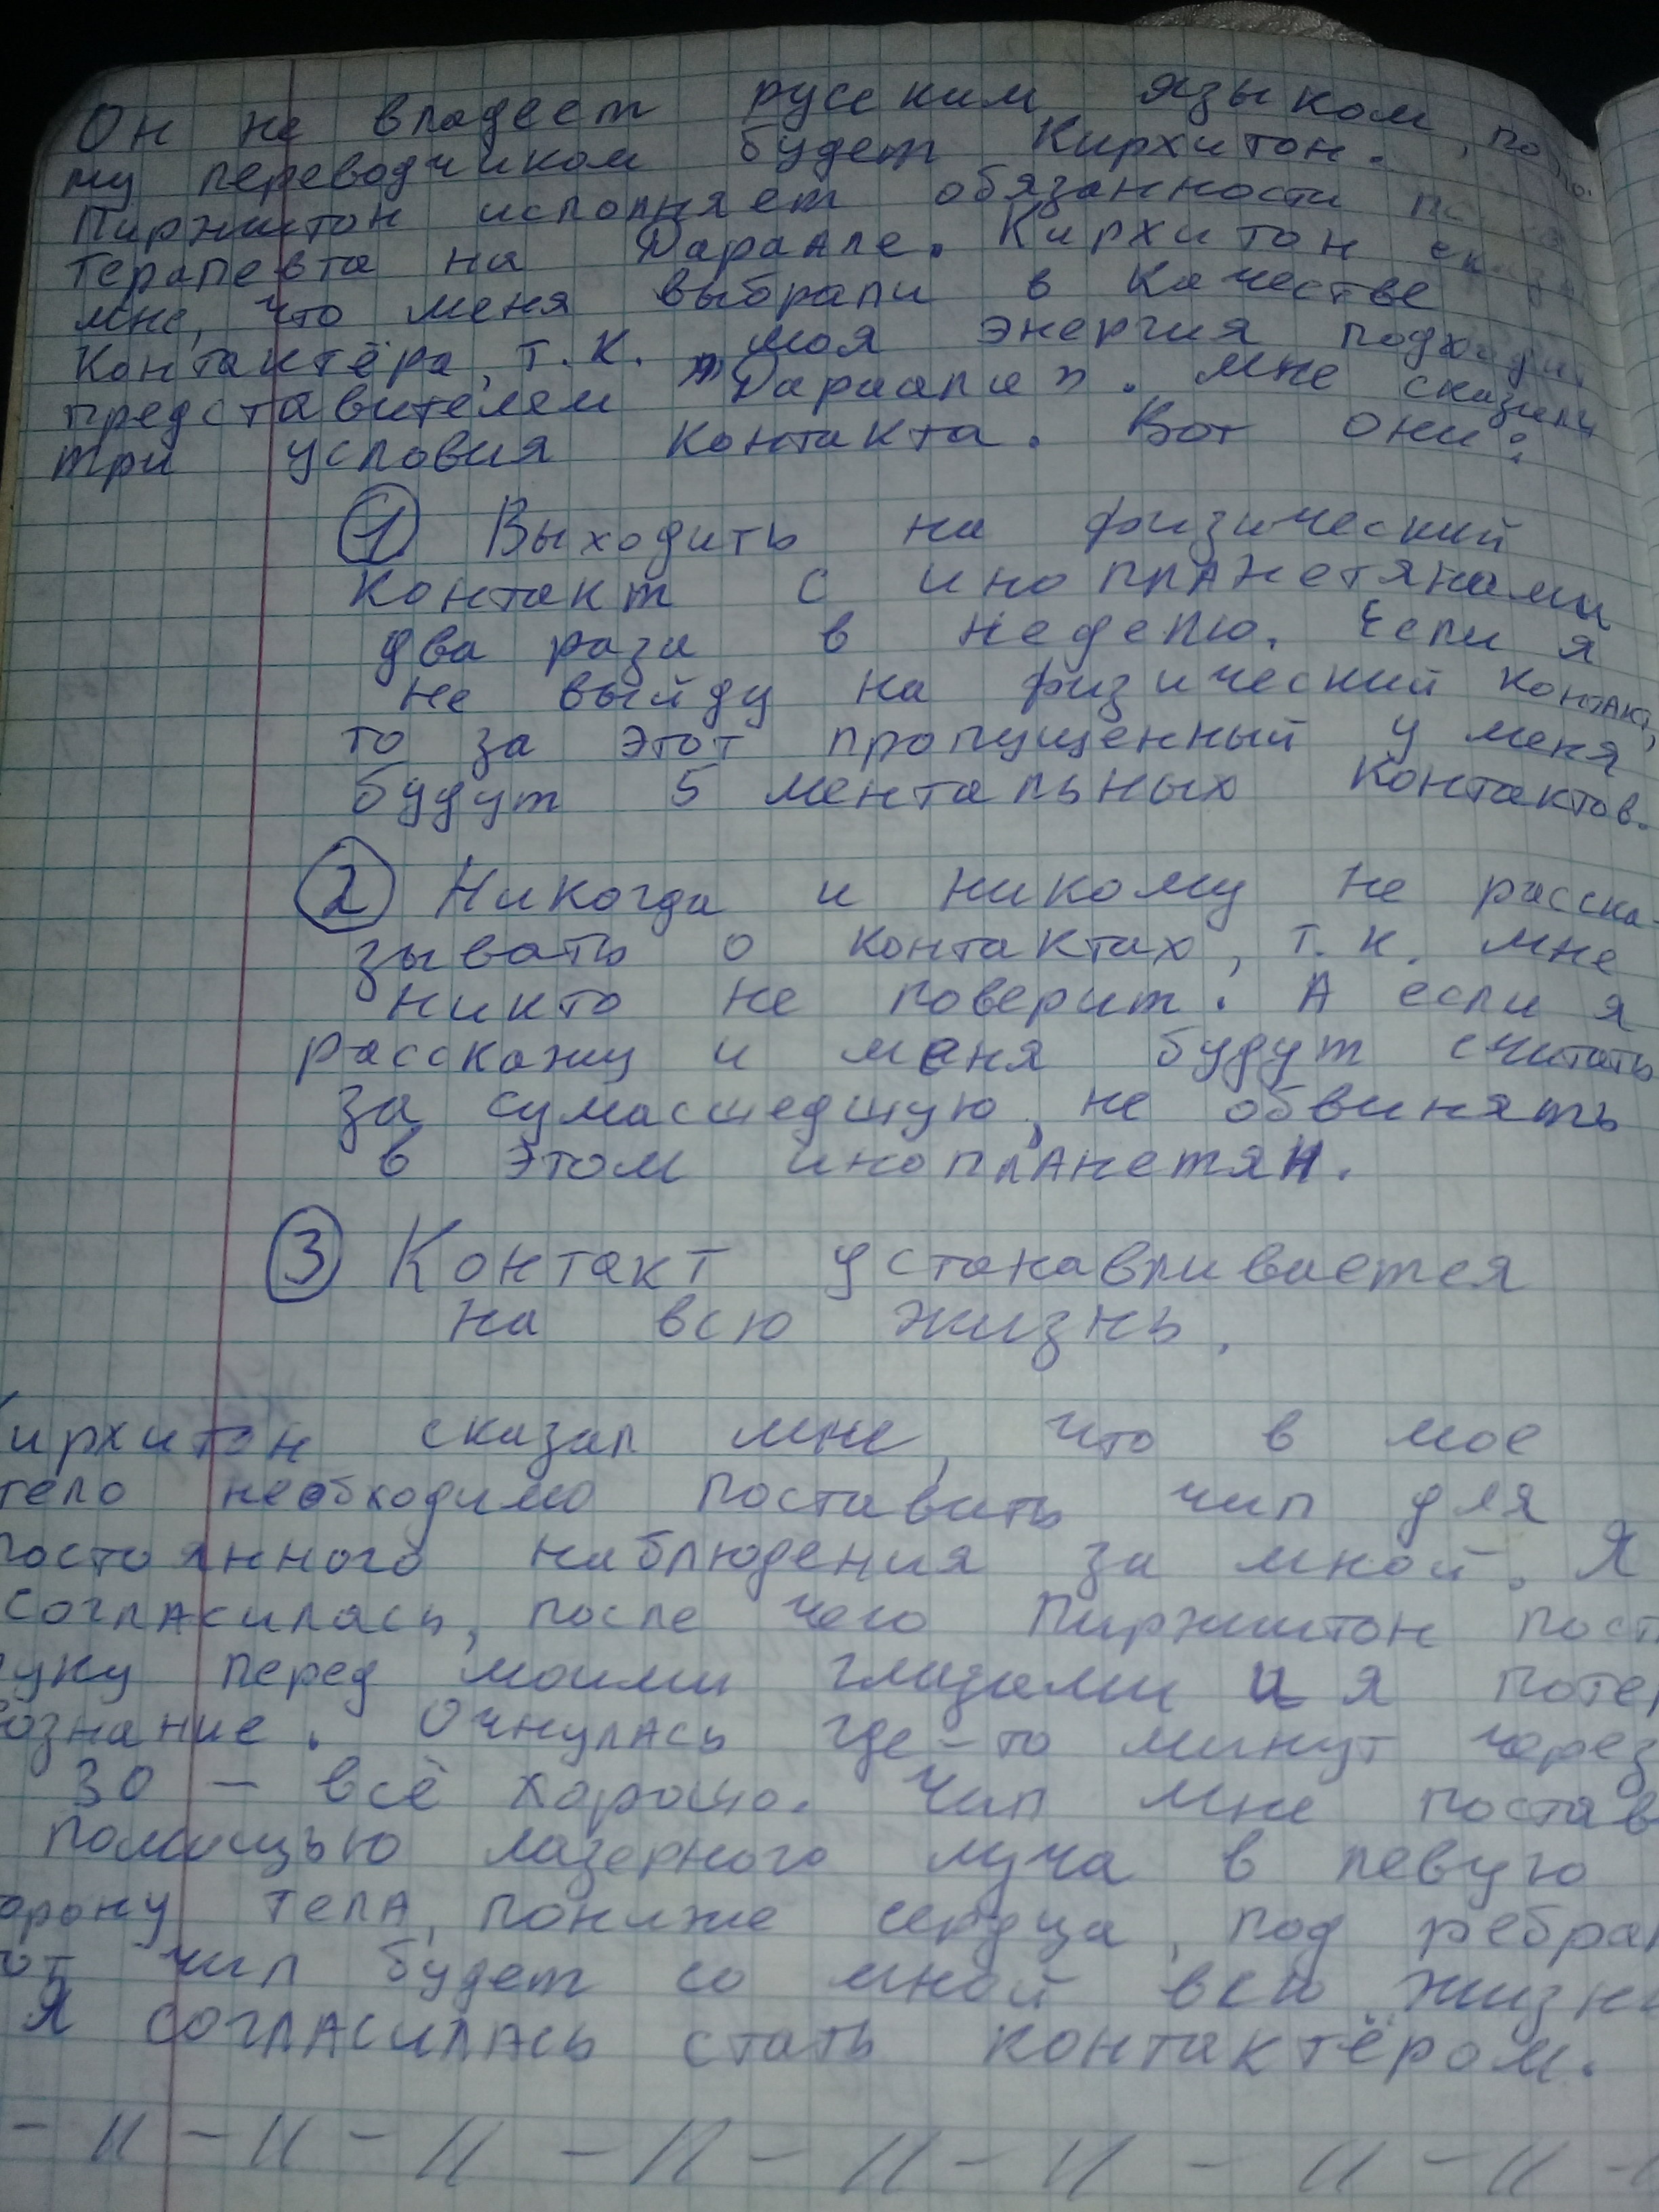 Он не владеет русским языком, поэто-
му переводчиком будет Кирхитон.
Пиржитон исполняет обязанности
терапевта на Дараале. Кирхитон
мне, что меня выбрали в качестве
контактёра, т.к. моя энергия подходит
представителям "Дараали". Мне сказали
три условия контакта. Вот они:
① Выходить на физический
контакт с инопланетянами
два раза в неделю. Если я
не выйду на физический контакт,
то за этот пропущенный у меня
будут 5 ментальных контактов.
② Никогда и никому не расска-
зывать о контактах, т.к. мне
никто не поверит. А если я
расскажу и меня будут считать
за сумасшедшую, не обвинять
в этом инопланетян.
③ Контакт устанавливается
на всю жизнь.
Кирхитон сказал мне, что в мое
тело необходимо поставить чип для
постоянного наблюдения за мной. Я
согласилась, после чего Пиржитон пост
руку перед моими глазами и я потер
сознание. Очнулась где-то минут через
30 – всё хорошо. Чип мне постав
помощью лазерного луча в левую
орону тела, пониже сердца, под ребрам
от чип будет со мной всю жизнь
Я согласилась стать контактёром.
– // – // – // – // – // – // – // – // –